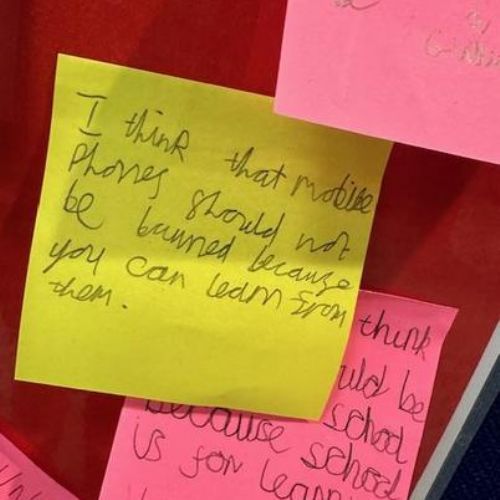 I think that mobile
phones should not
be banned because
you can learn from
them.
think
uld be
because school
school
is for learn